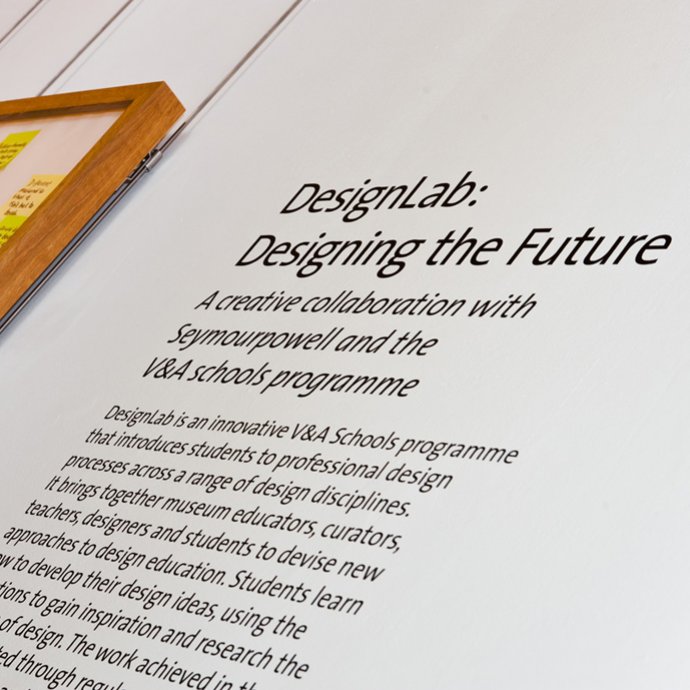 DesignLab:
Designing the Future
A creative collaboration with
Seymourpowell and the
V&A schools programme
DesignLab is an innovative V&A Schools programme
that introduces students to professional design
processes across a range of design disciplines.
It brings together museum educators, curators,
teachers, designers and students to devise new
approaches to design education. Students learn
to develop their design ideas, using the
to gain inspiration and research the
of design. The work achieved in
through